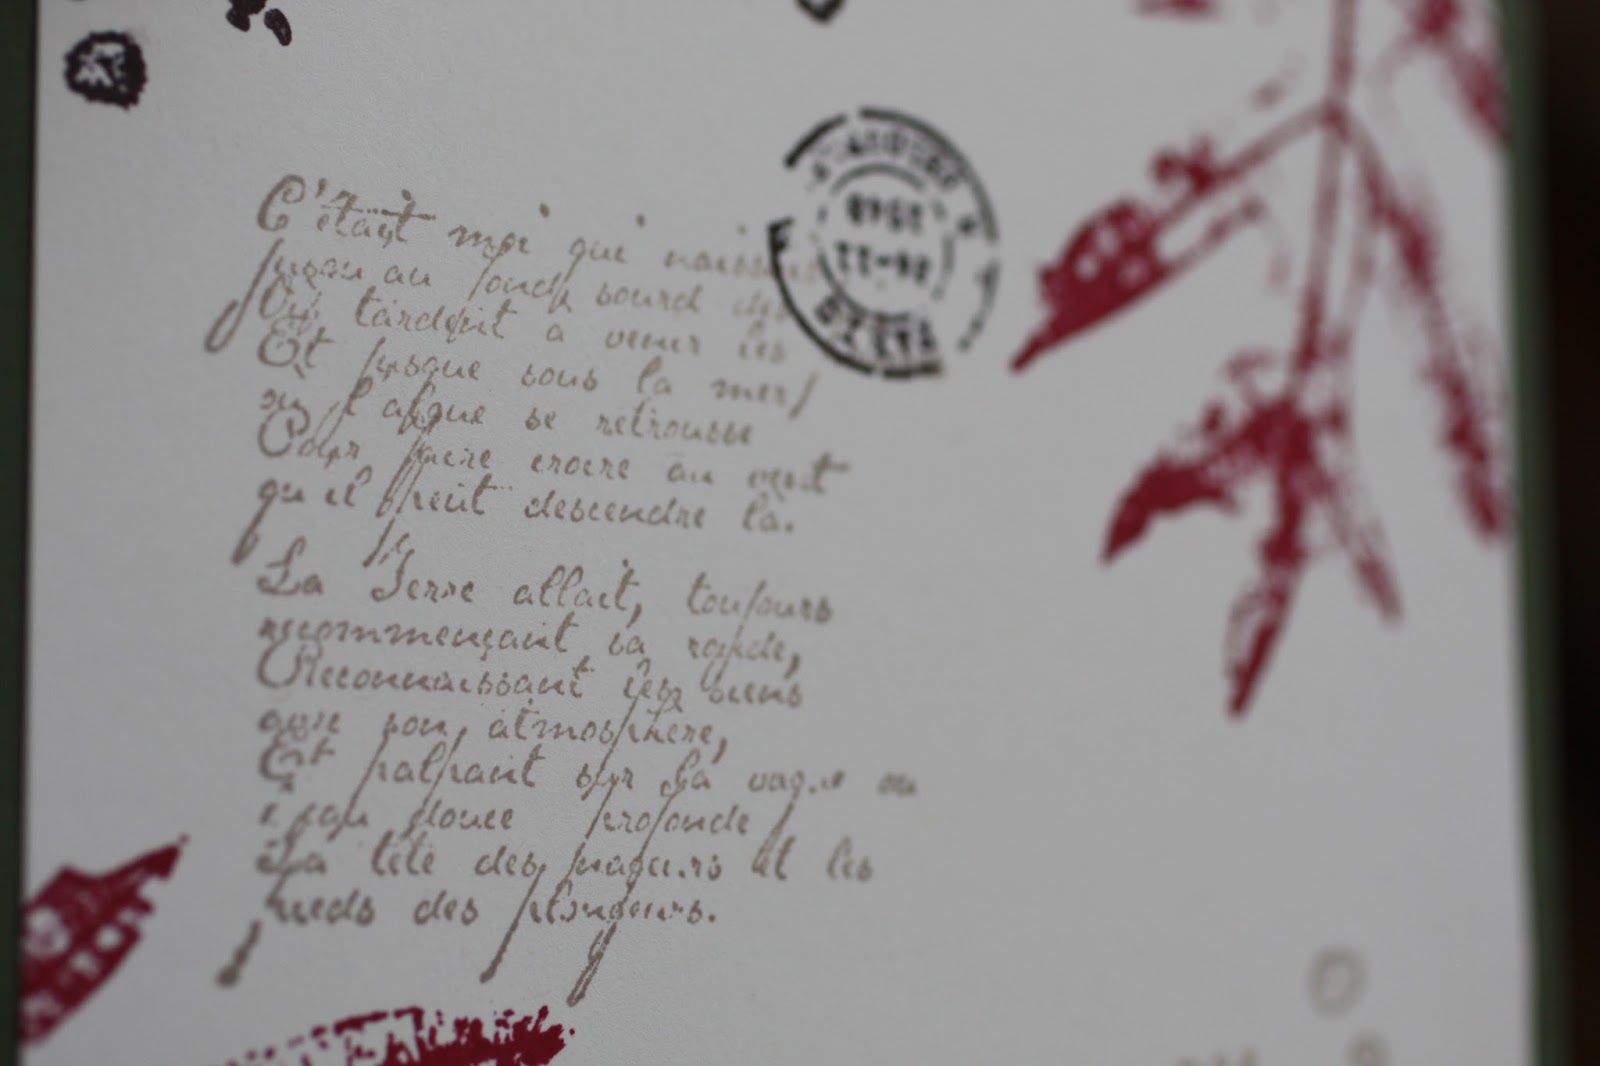 C'était moi qui naissais
jusqu'au fonds sourd des
Où tardent à venir les
Et jusque sous la mer,
où l'algue se retrousse
Pour faire croire au vent
qu'il peut descendre là.
La Terre allait, toujours
recommençant sa ronde,
Reconnaissant les siens
avec son atmosphère,
Et palpant sur la vague ou
l'eau douce profonde
La tête des nageurs et les
pieds des plongeurs.